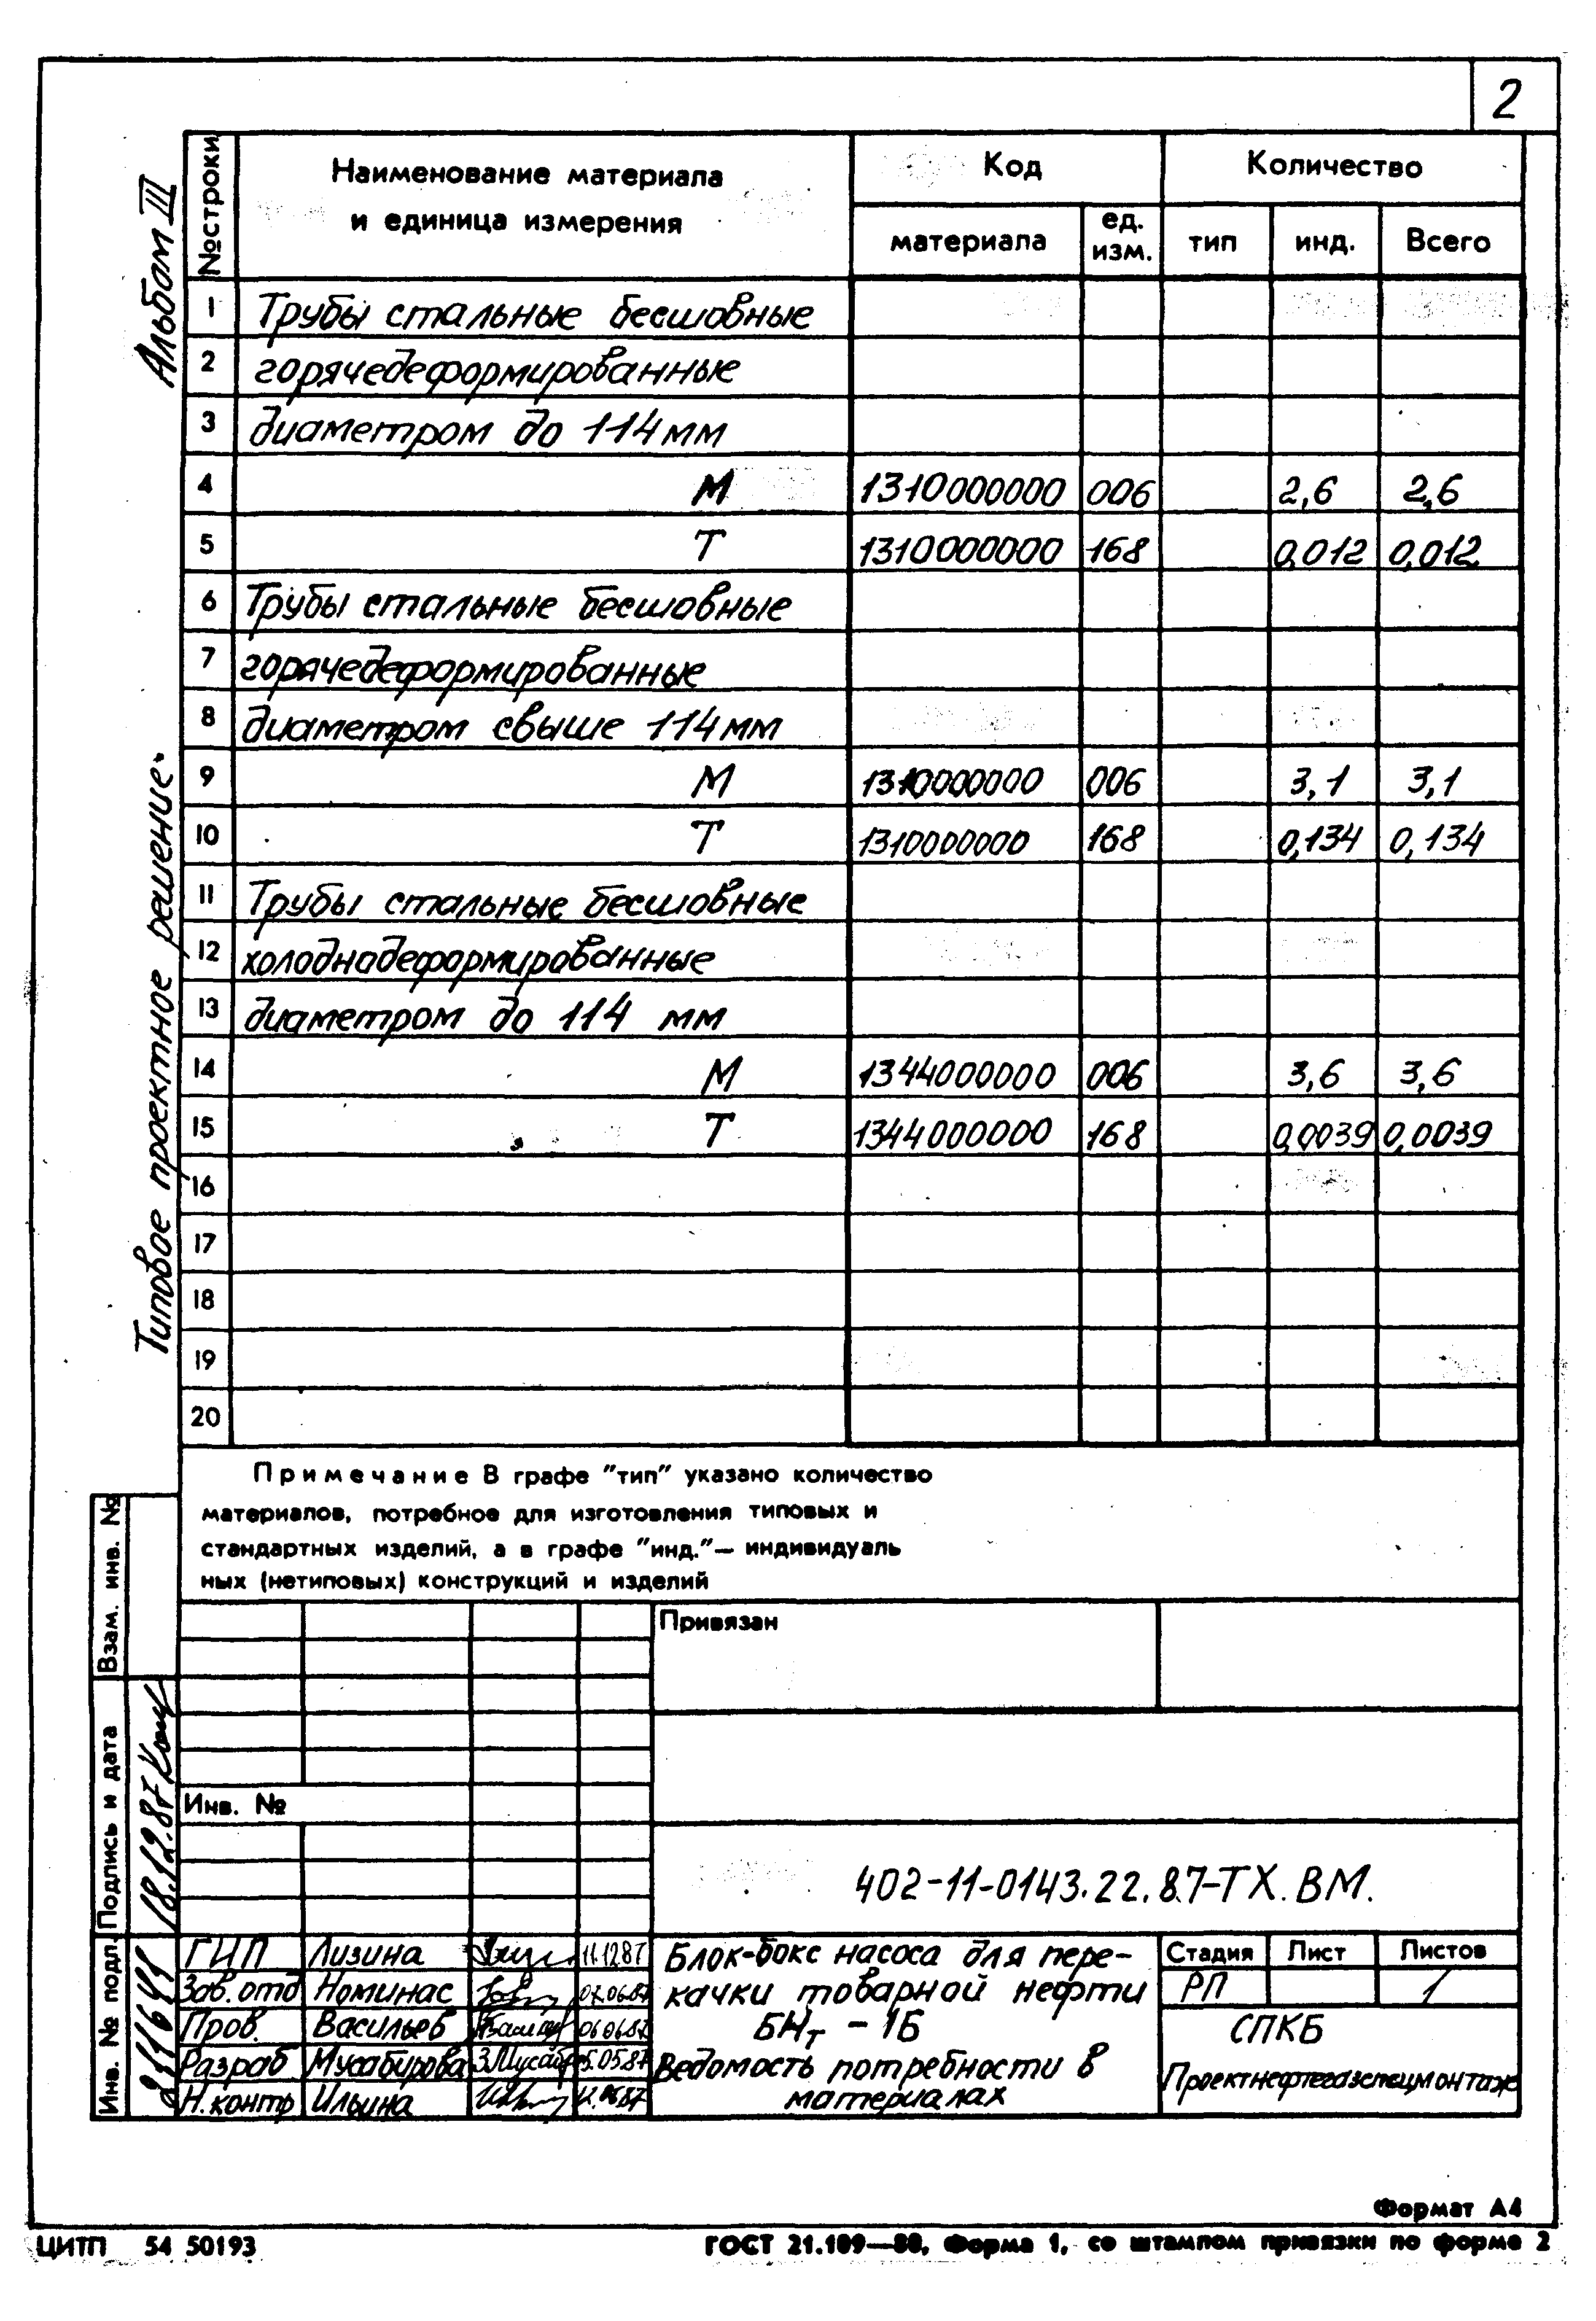 2
Альбом III
Типовое проектное решение
№ строки
Наименование материала
и единица измерения
Код
Количество
материала
ед.
изм.
тип
инд.
Всего
1 Трубы стальные бесшовные
2 горячедеформированные
3 диаметром до 114 мм
4 М 1310000000 006 2,6 2,6
5 Т 1310000000 168 0,012 0,012
6 Трубы стальные бесшовные
7 горячедеформированные
8 диаметром свыше 114 мм
9 М 1310000000 006 3,1 3,1
10 Т 1310000000 168 0,134 0,134
11 Трубы стальные бесшовные
12 холоднодеформированные
13 диаметром до 114 мм
14 М 1344000000 006 3,6 3,6
15 Т 1344000000 168 0,0039 0,0039
16
17
18
19
20
Примечание В графе "тип" указано количество
материалов, потребное для изготовления типовых и
стандартных изделий, а в графе "инд."— индивидуаль
ных (нетиповых) конструкций и изделий
Взам. инв. №
Подпись и дата
18.12.87
Инв. № подл.
Привязан
Инв. №
402-11-0143.22.87-ТХ.ВМ.
ГИП Лизина 11.12.87
Зав. отд Номинас 07.06.87
Пров. Васильев 06.06.87
Разраб Мусабирова 5.05.87
Н. контр Ильина
Блок-бокс насоса для пере-
качки товарной нефти
БНт - 1Б
Ведомость потребности в
материалах
Стадия Лист Листов
РП 1
СПКБ
Проектнефтегазспецмонтаж
Формат А4
ЦИТП 54 50193
ГОСТ 21.109—80, Форма 1, со штампом привязки по форме 2